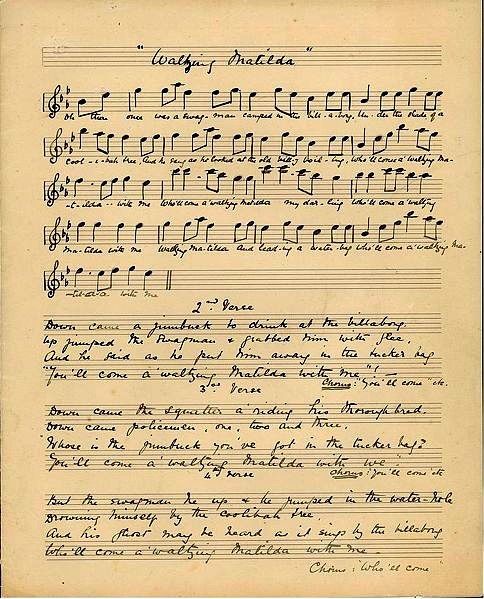 "Waltzing Matilda"
Oh there once was a swag-man camped in the bill-a-bong, Un-der the shade of a
cool-i-bah tree, And he sang as he looked at the old billy boil-ing, Who'll come a'waltzing Ma-
-t-ilda -- with me Who'll come a'waltzing Matilda my dar-ling Who'll come a'waltzing
ma-tilda with me Waltzing Ma-tilda and lead-ing a water-bag Who'll come a'waltzing Ma-
-tild-a with me
2nd Verse
Down came a jumbuck to drink at the billabong.
Up jumped the swagman & grabbed him with glee,
And he said as he put him away in the tucker bag
"You'll come a'waltzing Matilda with me"!
Chorus: "You'll come" etc.
3rd Verse
Down came the squatter a riding his thoroughbred.
Down came policemen, one, two and three.
Whose is the jumbuck you've got in the tucker bag?
You'll come a'waltzing Matilda with we".
Chorus: "You'll come" etc
4th Verse
But the swagman he up & he jumped in the water-hole
Drowning himself by the coolibah tree.
And his ghost may be heard as it sings by the billabong
Who'll come a'waltzing Matilda with me.
Chorus: "Who'll come"